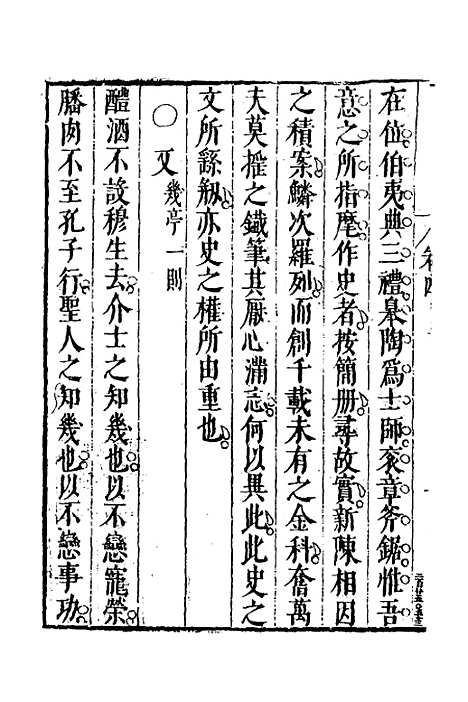 在位伯夷典三禮皋陶爲士師衮章斧鋸惟吾
意之所指麾作史者按簡册尋故實新陳相因
之積案鱗次羅列而創千載未有之金科奮萬
夫莫摧之鐵筆其厭心滿志何以異此此史之
文所繇剏亦史之權所由重也
○又幾亭一則
醴酒不設穆生去介士之知幾也以不戀寵榮
膰肉不至孔子行聖人之知幾也以不戀事功